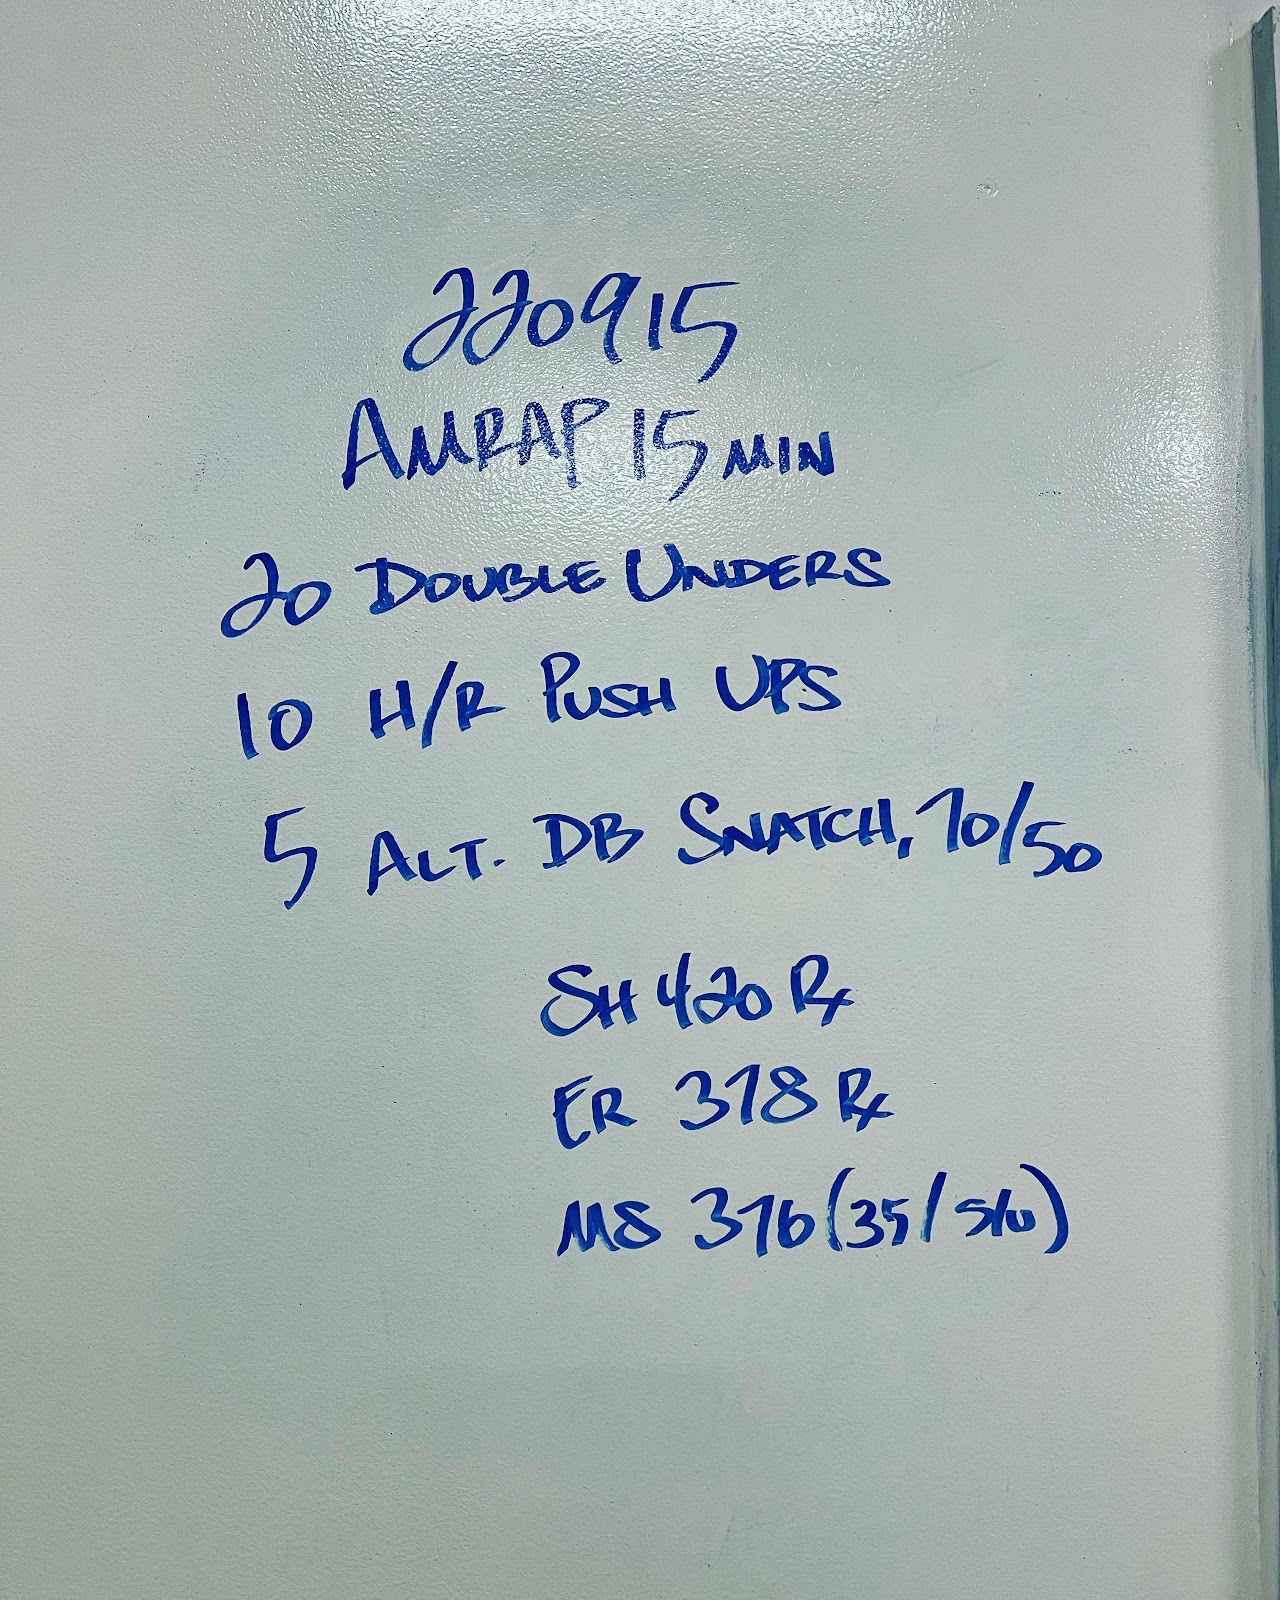 220915
AMRAP 15 MIN
20 DOUBLE UNDERS
10 H/R PUSH UPS
5 ALT. DB SNATCH, 70/50
SH 420 Rx
ER 378 Rx
MS 376 (35/S/U)